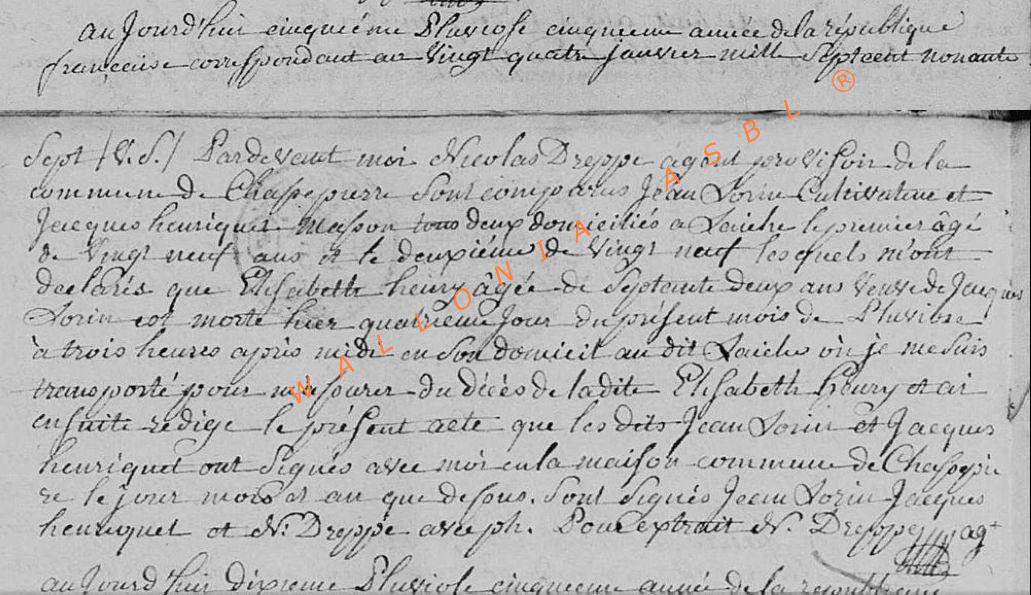 aujourd'huy cinquiéme Pluviose cinquieme année de la république
françoise correspondant au vingt quatre janvier mille Septcent nonante
Sept /V.S./ Pardevant moi Nicolas Dreppe agent provisoir de la
commune de Chassepierre sont comparus Jean Lorin Cultivateur et
Jacques henriquet Masson tous deux domiciliés a Laiche le premier âgé
de Vingt neuf ans et le deuxiéme de Vingt neuf lesquels m'ont
declarés que Elisabeth henry âgée de Septante deux ans Veuve de Jacques
Lorin est morte hier quatrieme jour du présent mois de Pluviose
à trois heures après midi en Son domicil au dit Laiche où je me suis
transporté pour m'assurer du décès de ladite Elisabeth henry et ai
ensuite redigé le présent acte que les dits Jean Lorin et Jacques
henriquet ont Signés avec moi en la maison commune de Chassepier
re le jour mois et an que dessus. Sont Signés Jean Lorin Jacques
henriquet et N. Dreppe avec ph. Pour extrait N. Dreppe agt
aujourd'huy dixieme Pluviose cinquieme année de la republique
WALLONIA ASBL ®